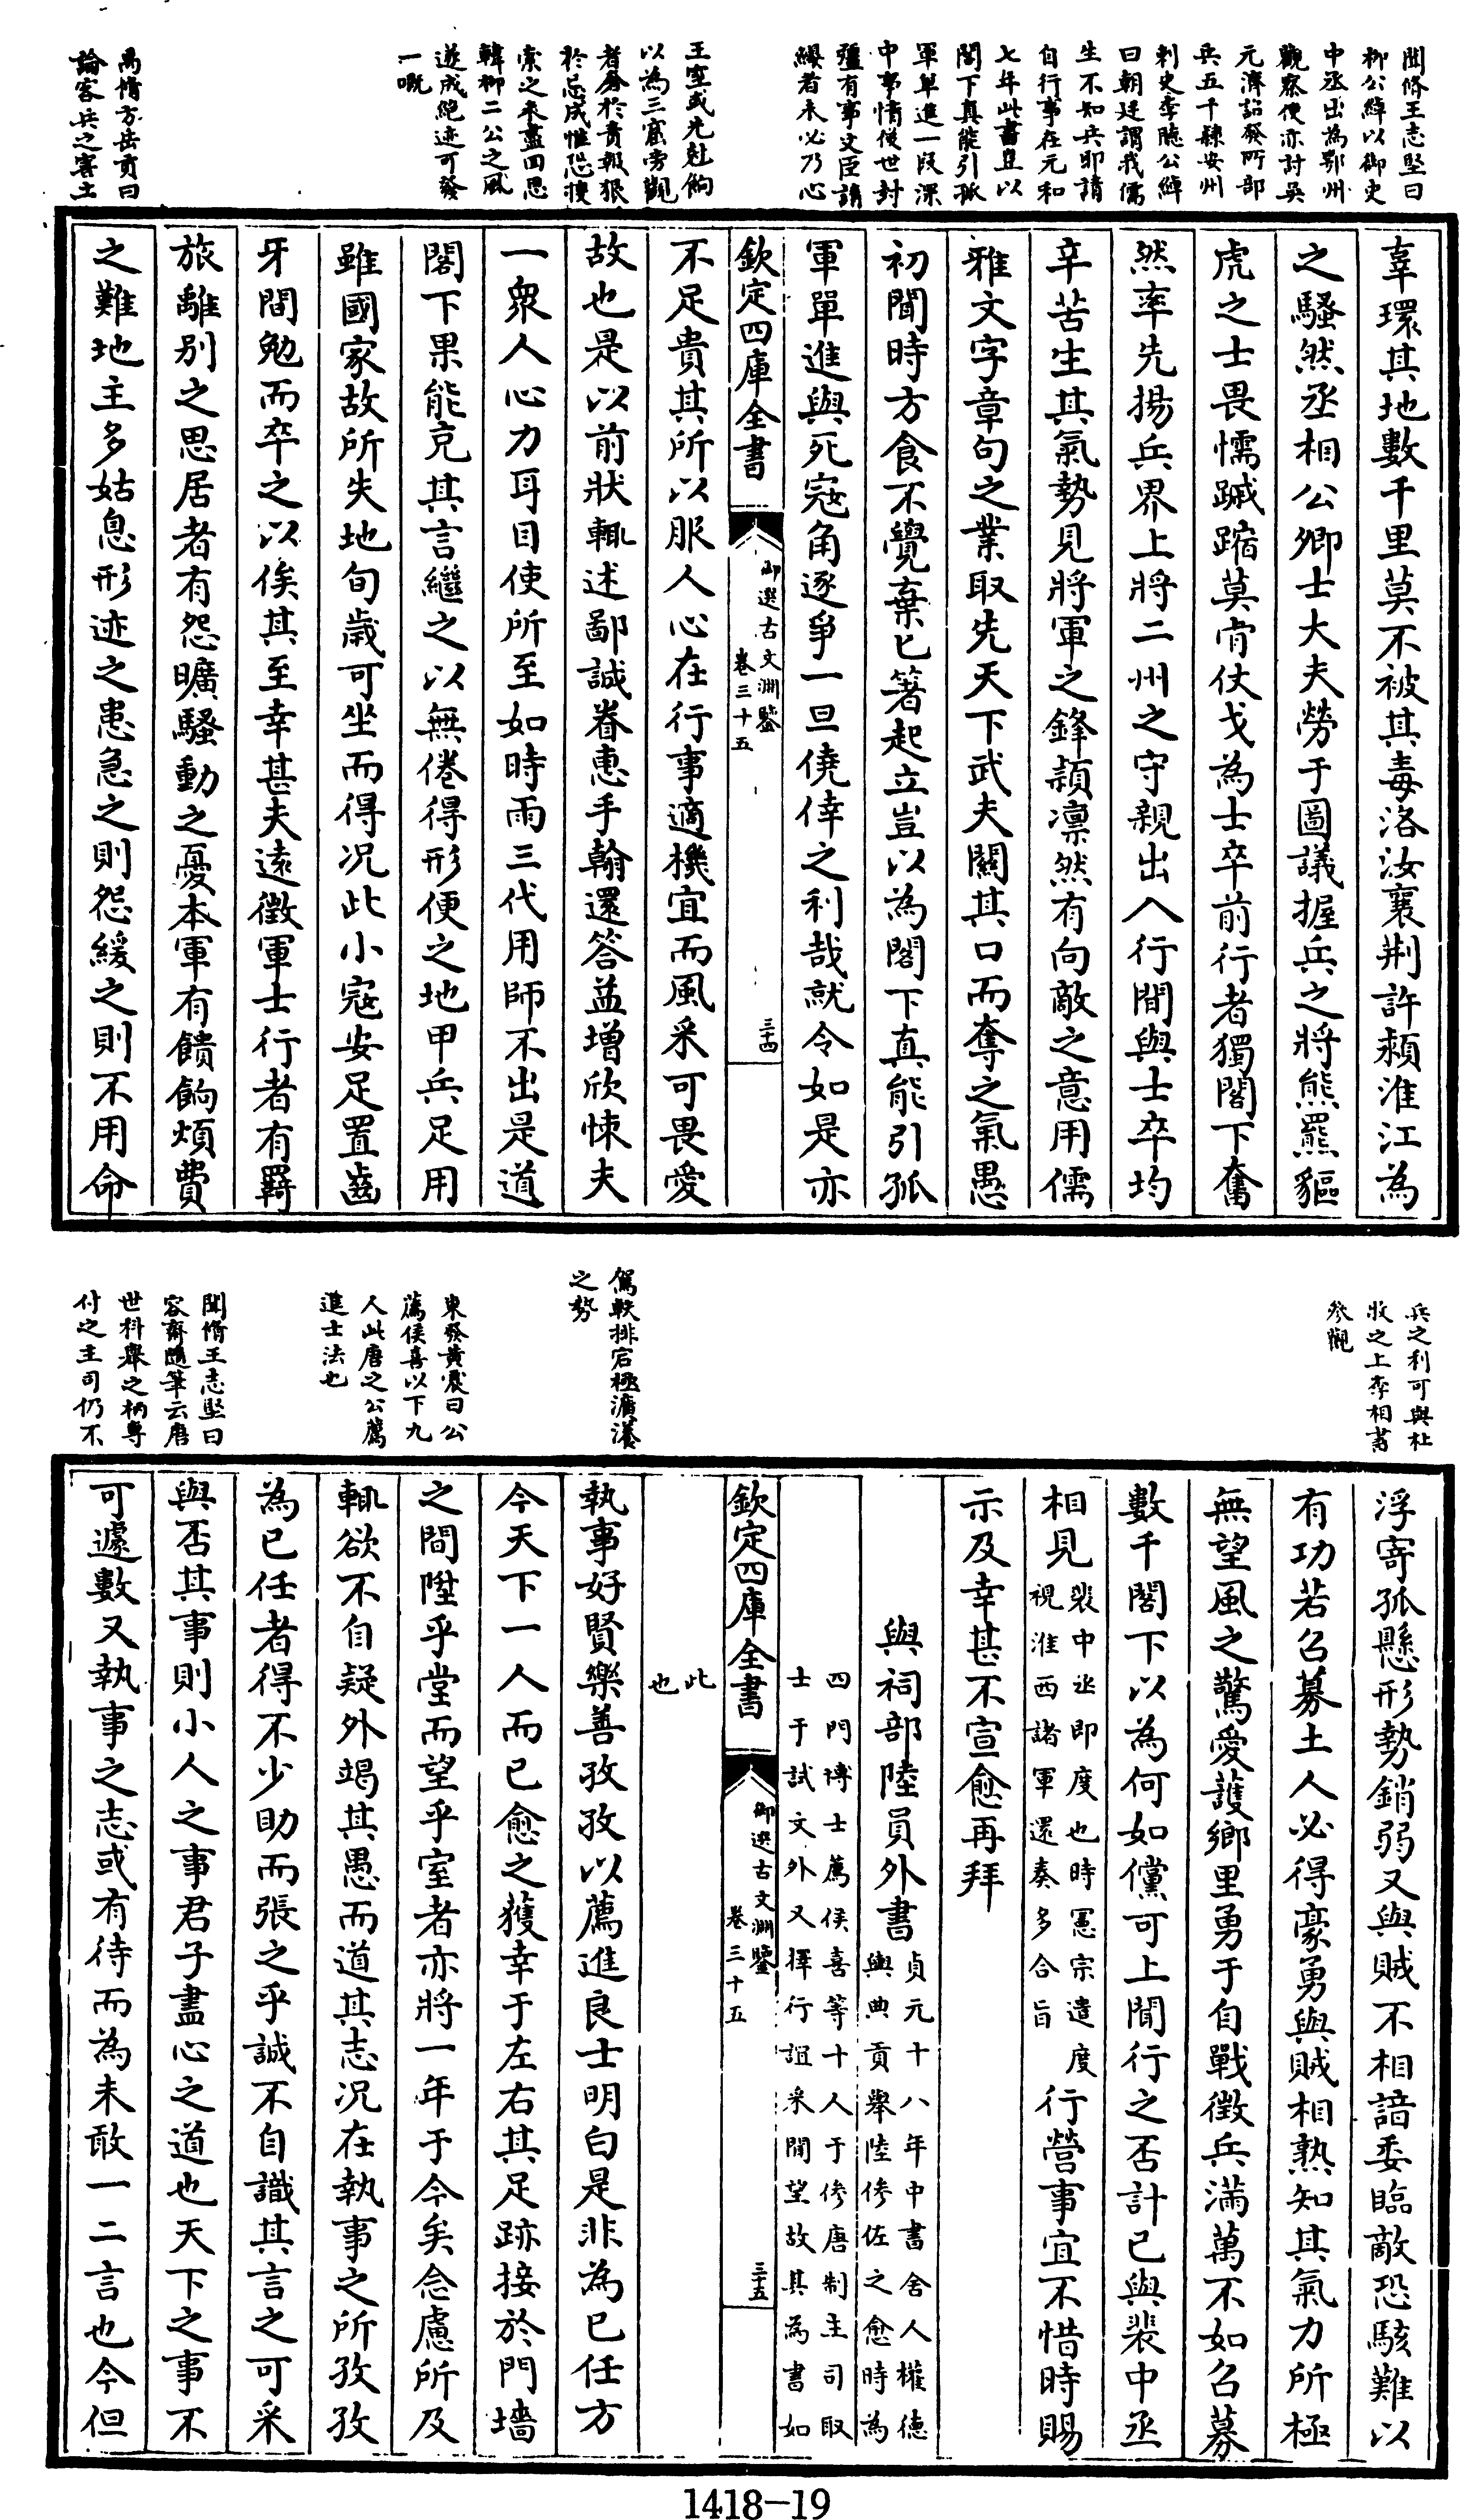 聞脩王志堅曰
柳公綽以御史
中丞出為鄂州
觀察使亦討吳
元濟詔發所部
兵五千隸安州
刺史李聽公綽
曰朝廷謂我儒
生不知兵即請
自行事在元和
七年此書且以
閣下真能引孤
軍單進一段深
中事情後世封
疆有事文臣請
纓者未必乃心
王室或先肚餉
以為三窟旁觀
者分於責報狠
於忌成惟恐搜
索之未盡回思
韓柳二公之風
遂成絕迹可發
一嘅
禹脩方岳貢曰
論客兵之害土
辜環其地數千里莫不被其毒洛汝襄荆許潁淮江為
之騷然丞相公卿士大夫勞于圖議握兵之將熊羆貙
虎之士畏懦蹙蹜莫肯仗戈為士卒前行者獨閣下奮
然率先揚兵界上將二州之守親出入行間與士卒均
辛苦生其氣勢見將軍之鋒穎凛然有向敵之意用儒
雅文字章句之業取先天下武夫關其口而奪之氣愚
初聞時方食不覺棄匕箸起立豈以為閣下真能引孤
軍單進與死寇角逐爭一旦僥倖之利哉就令如是亦
欽定四庫全書
御選古文淵鑒
卷三十五
三十四
不足貴其所以服人心在行事適機宜而風采可畏愛
故也是以前狀輒述鄙誠眷惠手翰還答益增欣悚夫
一衆人心力耳目使所至如時雨三代用師不出是道
閣下果能充其言繼之以無倦得形便之地甲兵足用
雖國家故所失地旬歲可坐而得况此小寇安足置齒
牙間勉而卒之以俟其至幸甚夫遠徵軍士行者有羇
旅離别之思居者有怨曠騷動之憂本軍有饋餉煩費
之難地主多姑息形迹之患急之則怨緩之則不用命
兵之利可與杜
牧之上李相書
參觀
駕軼排宕極瀇瀁
之勢
東發黃震曰公
薦侯喜以下九
人此唐之公薦
進士法也
聞脩王志堅曰
容齋隨筆云唐
世科舉之柄專
付之主司仍不
浮寄孤懸形勢銷弱又與賊不相諳委臨敵恐駭難以
有功若召募土人必得豪勇與賊相熟知其氣力所極
無望風之驚愛護鄉里勇于自戰徵兵滿萬不如召募
數千閣下以為何如儻可上聞行之否計已與裴中丞
相見裴中丞即度也時憲宗遣度
視淮西諸軍還奏多合旨
行營事宜不惜時賜
示及幸甚不宣愈再拜
與祠部陸員外書貞元十八年中書舍人權德
輿典貢舉陸傪佐之愈時為
四門博士薦侯喜等十人于傪唐制主司取
士于試文外又擇行誼采聞望故其為書如
此
也
欽定四庫全書
御選古文淵鑒
卷三十五
三十五
執事好賢樂善孜孜以薦進良士明白是非為已任方
今天下一人而已愈之獲幸于左右其足跡接於門墻
之間陞乎堂而望乎室者亦將一年于今矣念慮所及
輒欲不自疑外竭其愚而道其志况在執事之所孜孜
為已任者得不少助而張之乎誠不自識其言之可采
與否其事則小人之事君子盡心之道也天下之事不
可遽數又執事之志或有待而為未敢一二言也今但
1418-19